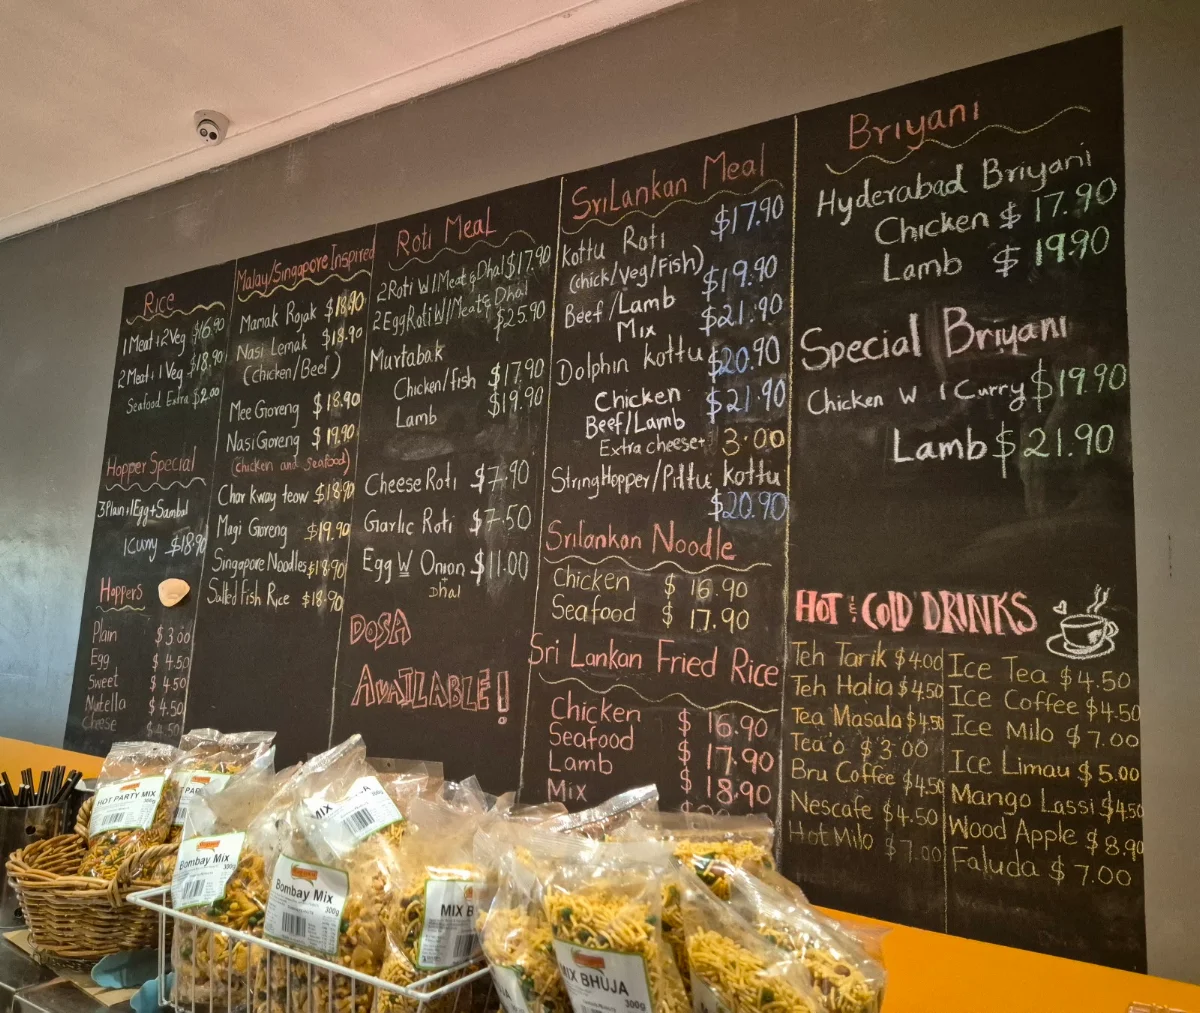 Rice
1 Meat + 2 Veg $16.90
2 Meat + 1 Veg $18.90
Seafood Extra $2.00
Hopper Special
3 Plain + 1 Egg + Sambal
1 Curry $18.90
Hoppers
Plain $3.00
Egg $4.50
Sweet $4.50
Nutella $4.50
Cheese $4.50
Malay/Singapore Inspired
Mamak Rojak $18.90
Nasi Lemak $18.90
(Chicken/Beef)
Mee Goreng $18.90
Nasi Goreng $19.90
(Chicken and Seafood)
Char kway teow $18.90
Magi Goreng $19.90
Singapore Noodles $18.90
Salted Fish Rice $18.90
Roti Meal
2 Roti W/Meat & Dhal $17.90
2 Egg Roti W/Meat & Dhal
$25.90
Murtabak
Chicken/fish $17.90
Lamb $19.90
Cheese Roti $7.90
Garlic Roti $7.50
Egg W Onion $11.00
+ Dhal
DOSA
AVAILABLE!
SriLankan Meal
$17.90
Kottu Roti
(chick/Veg/Fish)
Beef/Lamb $19.90
Mix $21.90
Dolphin kottu
Chicken $20.90
Beef/Lamb $21.90
Extra cheese+ 3.00
StringHopper/Pittu kottu
$20.90
Srilankan Noodle
Chicken $16.90
Seafood $17.90
Sri Lankan Fried Rice
Chicken $16.90
Seafood $17.90
Lamb $18.90
Mix
Briyani
Hyderabad Briyani
Chicken $17.90
Lamb $19.90
Special Briyani
Chicken W 1 Curry $19.90
Lamb $21.90
HOT & COLD DRINKS
Teh Tarik $4.00
Teh Halia $4.50
Tea Masala $4.50
Tea'o $3.00
Bru Coffee $4.50
Nescafe $4.50
Hot Milo $7.00
Ice Tea $4.50
Ice Coffee $4.50
Ice Milo $7.00
Ice Limau $5.00
Mango Lassi $4.50
Wood Apple $8.90
Faluda $7.00
HOT PARTY MIX
300g
Bombay Mix
300g
Bombay Mix
300g
MIX
MIX B
MIX BHUJA
300g